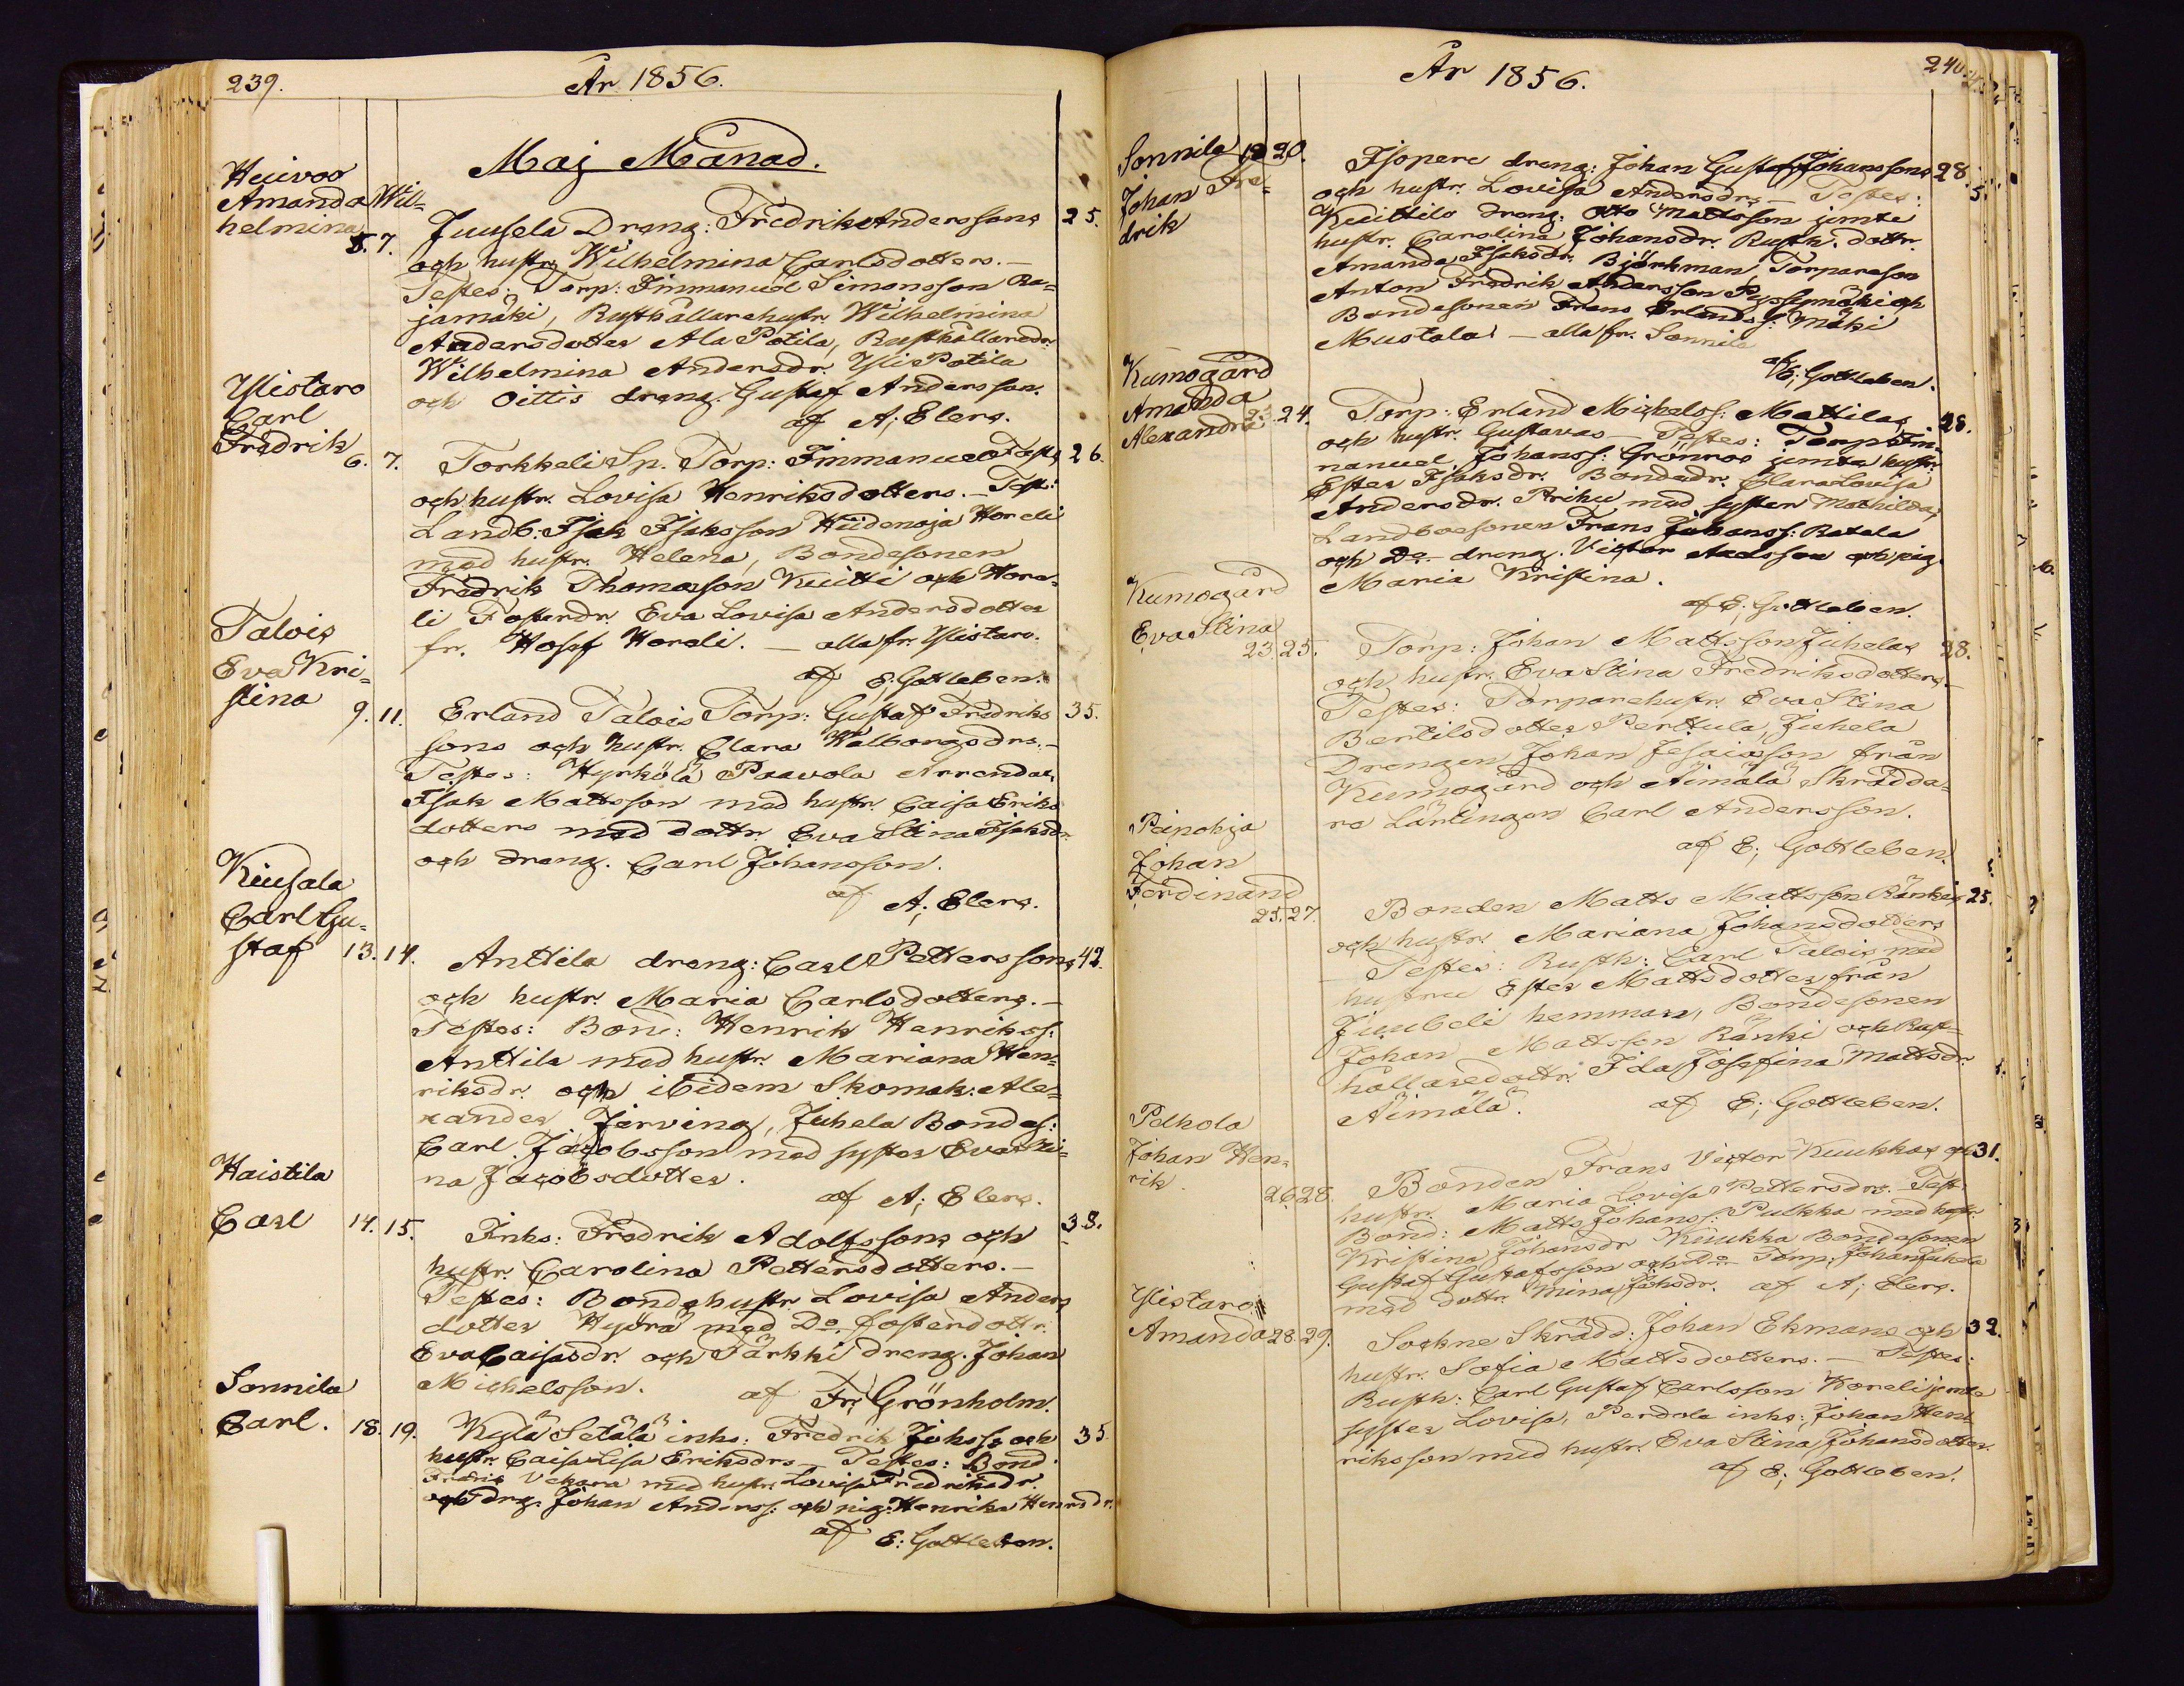 239.
År 1856.
Maj Månad.
Heivoo
Amanda Wil-
helmina
5. 7.
Juusela Dräng: Fredrik Anderssons 25.
och hustr. Wilhelmina Carlsdotters. —
Testes: Torp: Immanuel Simonsson Ra-
jamäki, Rusthållarehustr. Wilhelmina
Andersdotter Ala Potila, Rusthållaredr.
Wilhelmina Andersdr. Yli Potila
och Oittis dräng. Gustaf Andersson.
af A; Elers.
Ylistaro
Carl
Fredrik
6. 7.
Torkkeli Sp. Torp: Immanuel 26.
och hustr. Lovisa Henriksdotters. — Test:
Landb: Isak Isaksson Hiidenoja Horeli
med hustr. Helena, Bondesonen
Fredrik Thomasson Knitti och Hore-
li Fosterdr. Eva Lovisa Andersdotter
fr. Hossf Horeli. — alla fr. Ylistaro.
af E: Gottleben.
Talois
Eva Kri-
stina
9. 11.
Erland Talois Torp: Gustaf Fredriks 35.
sons och hustr. Clara Walborgsdrs. —
Testes: Hyrkölä Paavola Arrendat.
Isak Mattsson med hustr. Caisa Eriks
dotters med dottr. Eva Stina Isaksdr.
och dräng. Carl Johansson.
af A; Elers.
Kiusala
Carl Gu-
staf 13. 14.
Anttila dräng: Carl Petterssons 42.
och hustr. Maria Carlsdotters. —
Testes: Bond: Henrik Henrikss:
Anttila med hustr. Mariana Hen-
riksdr. och ibidem Skomak: Ale-
xander Jerving, Juhela Bondes:
Carl Jacobsson med syster Eva Sti-
na Jacobsdotter.
af A; Elers.
Haistila
Carl 14. 15.
Inhs: Fredrik Adolfssons och 38.
hustr. Carolina Pettersdotters. —
Testes: Bondehustr Lovisa Anders
dotter Hyörä med Do. fosterdottr.
Eva Caisasdr. och Tärkki dräng. Johan
Michelsson.
af Fr; Grönholm.
Sonnila
Carl. 18. 19.
Kylä Setälä inhs: Fredrik Johss: och 35
hustr. Caisa Lisa Eriksdrs — Testes: Bond
Fredrik Vekara med hustr. Lovisa Fredriksdr.
och drg. Johan Anderss: och pig: Henrika Henrsdr.
af E: Gottleben.
År 1856.
240.
Sonnila 19 20.
Johan Fre-
drik
Isopere dräng: Johan Gustaf Johanssons 28.
och hustr. Lovisa Andersdrs — Testes:
Knittilo dräng: Otto Mattsson jemte
hustr. Carolina Johansdr. Rusth. dottr.
Amanda Isaksdr. Björkman, Torpareson
Anton Fredrik Andersson Pyssymäki och
Bondesonen Frans Erlands: Mäki
Mustola — alla fr. Sonnila
af E; Gottleben.
Kumogård
Amanda
Alexandra 23. 24.
Torp: Erland Michelss: Mattilas 28.
och hustr. Gustavas — Testes: Torp: Im-
manuel Johanss: Grönroos jemte hustr.
Ester Isaksdr. Bondedr. Clara Lovisa
Andersdr. Prihu med syster Mathilda,
Landboesonen Frans Johanss: Ratala
och Do. dräng. Victor och pig.
Maria Kristina.
af E; Gottleben.
Kumogård
Eva Stina
23. 25.
Torp: Johan Mattsson Juhelas 28.
och hustr. Eva Stina Fredriksdotters. —
Testes: Torparehustr. Eva Stina
Bertilsdotter Perttula, Juhela
Drängen Johan Jesaiasson från
Kumogård och Äimälä Skrädda-
re Lärlingen Carl Andersson.
af E; Gottleben.
Peinokja
Johan
Ferdinand
25. 27.
Bonden Matts Mattsson Ränkis 25.
och hustr. Mariana Johansdotters
Testes: Rusth: Carl Talois med
hustru Ester Mattsdotter från
Juubeli hemman, Bondesonen
Johan Mattsson Ränki och Rust-
hållaredottr. Ida Josefina Mattsdr.
Äimälä.
af E; Gottleben.
Pelhola
Johan Hen-
rik. 26. 28.
Bonden Frans Victor Kuukkas och 31.
hustr. Maria Lovisa Pettersdrs. — Test:
Bond: Matts Johanss: Pulkka med hustr.
Kristina Johansdr Kuukka Bondesonen
Gustaf Gustafsson och Do. Torp: Johan Juhola
med dottr. Mina Johsdr. af A; Elers.
Ylistaro
Amanda 28. 29.
Sockne Skrädd: Johan Ekmans och 32.
hustr. Sofia Mattsdotters. — Testes:
Rusth: Carl Gustaf Carlsson Horeli jemte
syster Lovisa, Perdola inhs: Johan Hen-
riksson med hustr. Eva Stina Johansdotter.
af E; Gottleben.